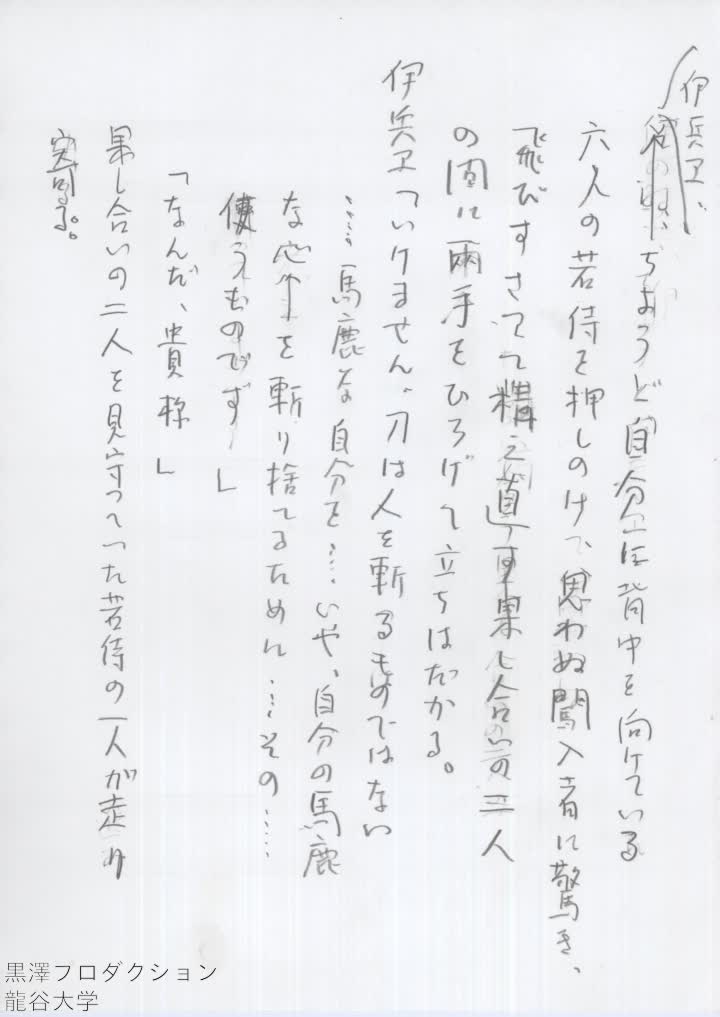 伊兵ヱ、
ちようど自分に背中を向けている
六人の若侍を押しのけ、思わぬ闖入者に驚き、
飛びすさって構え直す果し合いの二人
の間に両手をひろげて立ちはだかる。
伊兵ヱ「いけません、刀は人を斬るものではない
……馬鹿な自分を……いや、自分の馬鹿
な心を斬り捨てるために……その……
使うものです」
「なんだ、貴様」
果し合いの二人を見守っていた若侍の一人が走り
寄る。
黒澤プロダクション
龍谷大学